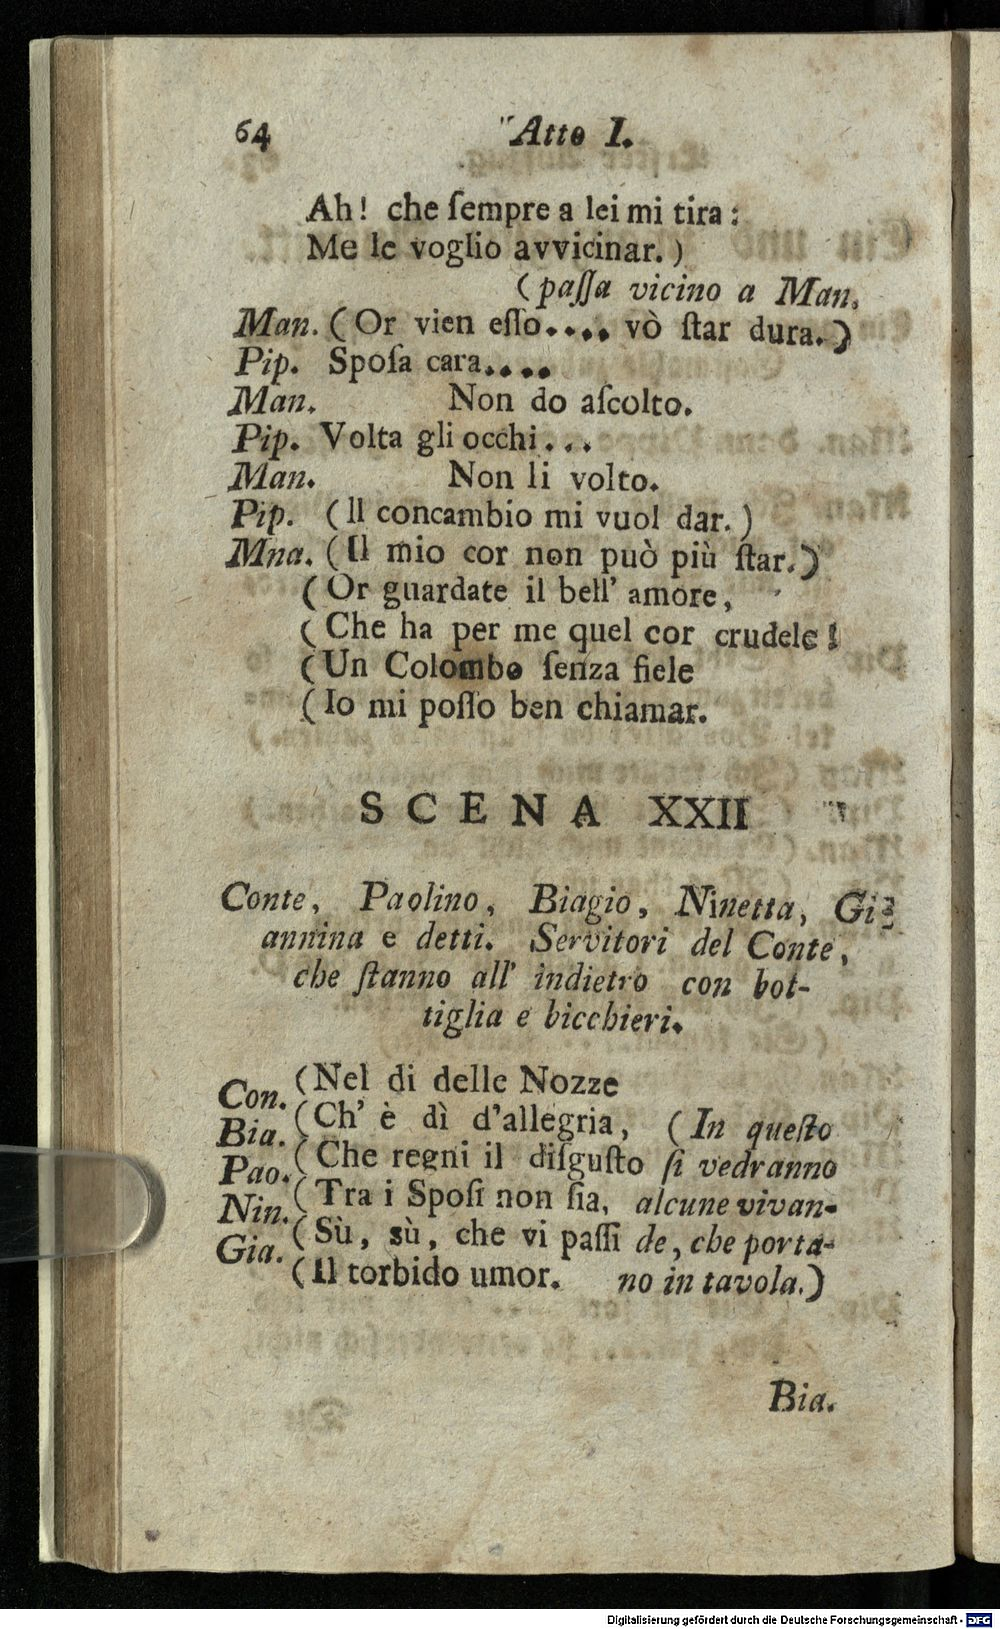 64 Atto I.
Ah! che ſempre a lei mi tira:
Me le voglio avvicinar.)
(paſſa vicino a Man.
Man. (Or vien eſſo.... vò ſtar dura.)
Pip. Spoſa cara....
Man. Non do aſcolto.
Pip. Volta gli occhi...
Man. Non li volto.
Pip. (Il concambio mi vuol dar.)
Mna. (Il mio cor non può più ſtar.)
(Or guardate il bell' amore,
(Che ha per me quel cor crudele!
(Un Colombo ſenza fiele
(Io mi poſſo ben chiamar.
SCENA XXII
Conte, Paolino, Biagio, Ninetta, Gi-
annina e detti. Servitori del Conte,
che ſtanno all' indietro con bot-
tiglia e bicchieri.
(Nel di delle Nozze
Con. (Ch' è dì d'allegria, (In queſto
Bia. (Che regni il diſguſto ſi vedranno
Pao. (Tra i Spoſi non ſia, alcune vivan-
Nin. (Sù, sù, che vi paſſi de, che porta-
Gia. (Il torbido umor. no in tavola.)
Bia.
Digitalisierung gefördert durch die Deutsche Forschungsgemeinschaft - DFG